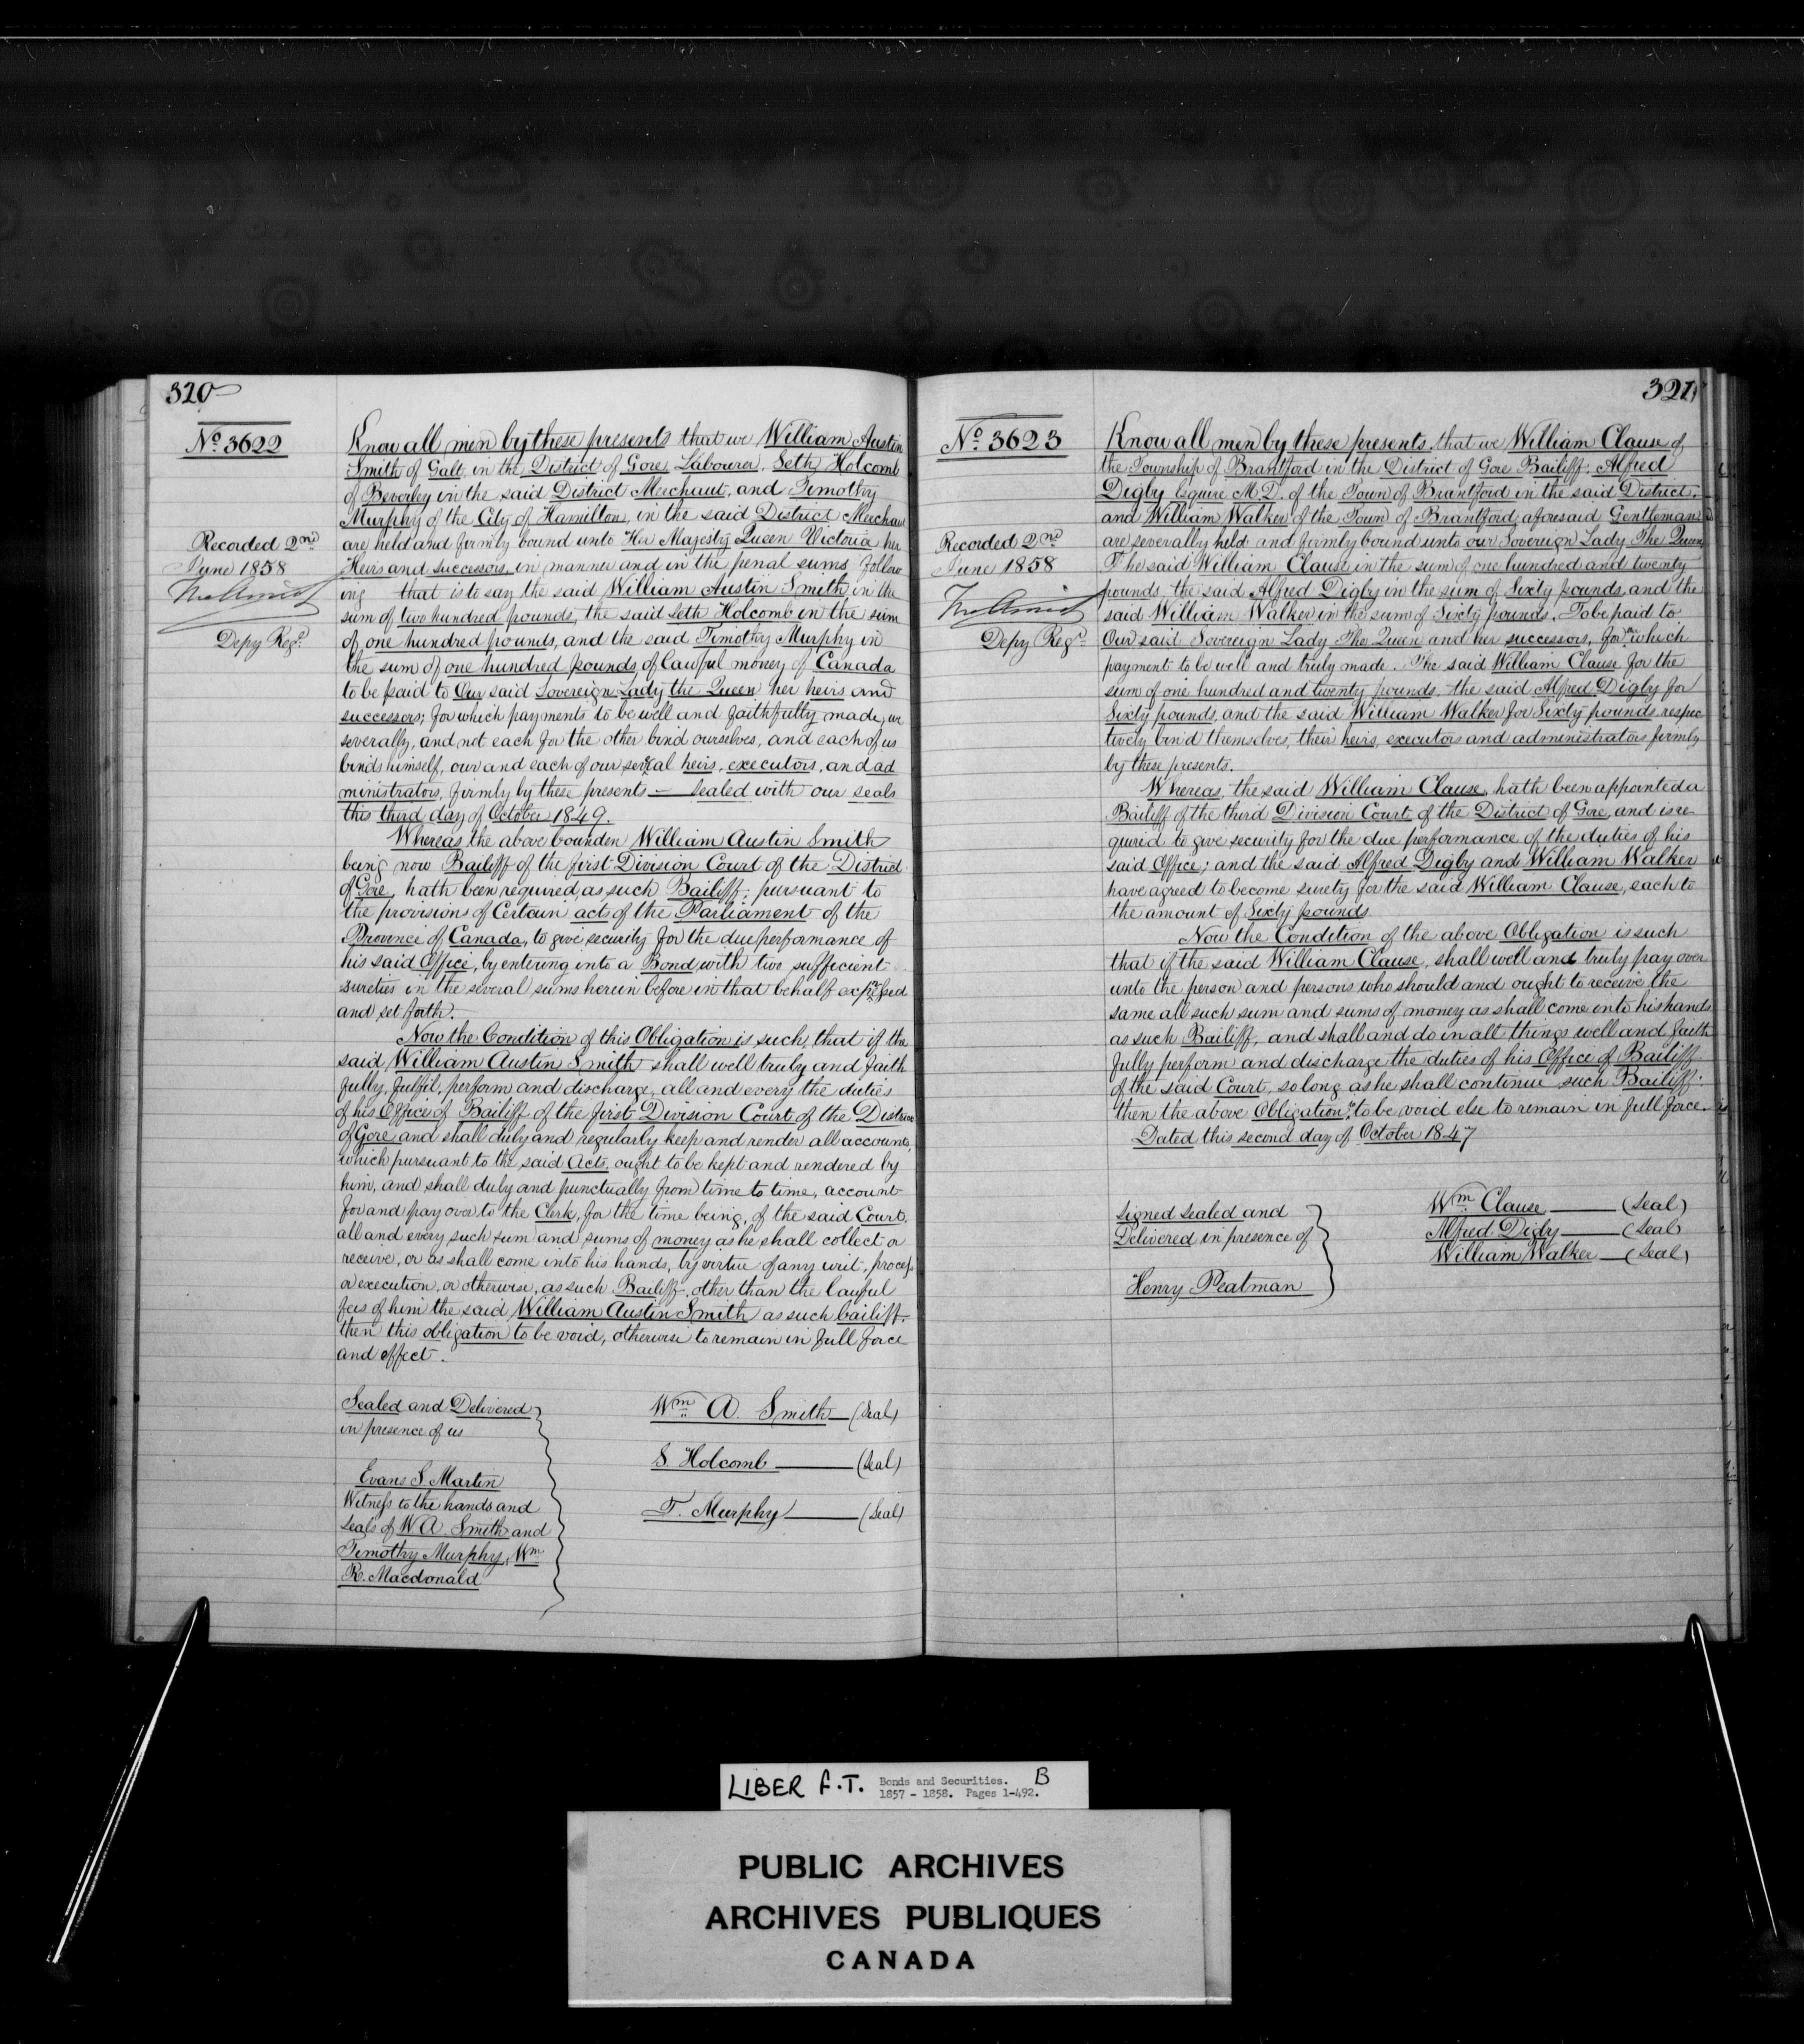 320
No. 3622
Recorded 2nd
June 1858
Depy Regr.
Know all men by these presents that we William Austin
Smith of Galt in the District of Gore, Labourer, Seth Holcomb
of Beverley in the said District Merchant, and Timothy
Murphy of the City of Hamilton, in the said District Merchan
are held and firmly bound unto Her Majesty Queen Victoria her
Heirs and successors, in manner and in the penal sums follow
ing that is to say the said William Austin Smith in the
sum of two hundred pounds, the said Seth Holcomb in the sum
of one hundred pounds, and the said Timothy Murphy in
the sum of one hundred pounds of lawful money of Canada
to be paid to Our said Sovereign Lady the Queen her heirs and
successors; for which payments to be well and faithfully made, we
severally, and not each for the other bind ourselves, and each of us
binds himself, our and each of our several heirs, executors, and ad
ministrators, firmly by these presents — Sealed with our seals
this third day of October 1849.
Whereas the above bounden William Austin Smith
being now Bailiff of the first Division Court of the District
of Gore, hath been required, as such Bailiff, pursuant to
the provisions of Certain act of the Parliament of the
Province of Canada, to give security for the due performance of
his said Office, by entering into a Bond with two sufficient
sureties in the several sums herein before in that behalf expressed
and set forth.
Now the Condition of this Obligation is such, that if the
said William Austin Smith shall well truly and faith
fully, fulfil, perform and discharge, all and every the duties
of his Office of Bailiff of the first Division Court of the District
of Gore and shall duly and regularly keep and render all accounts,
which pursuant to the said Acts, ought to be kept and rendered by
him, and shall duly and punctually from time to time, account
for and pay over to the Clerk, for the time being, of the said Court,
all and every such sum and sums of money as he shall collect or
receive, or as shall come into his hands, by virtue of any writ, process
or execution, or otherwise, as such Bailiff, other than the lawful
fees of him the said William Austin Smith as such bailiff.
then this obligation to be void, otherwise to remain in full force
and effect.
Sealed and Delivered
in presence of us
Evans S. Martin
Witness to the hands and
seals of W A. Smith and
Timothy Murphy, Wm
R. Macdonald
Wm A. Smith — (Seal)
S. Holcomb — (Seal)
T. Murphy — (Seal)
321
No. 3623
Recorded 2nd
June 1858
Depy Regr.
Know all men by these presents, that we William Clause of
the Township of Brantford in the District of Gore Bailiff; Alfred
Digby Esquire M.D. of the Town of Brantford in the said District,
and William Walker of the Town of Brantford aforesaid Gentleman
are severally held and firmly bound unto our Sovereign Lady The Queen,
The said William Clause in the sum of one hundred and twenty
pounds, the said Alfred Digby in the sum of Sixty pounds, and the
said William Walker in the sum of Sixty pounds. To be paid to
Our said Sovereign Lady The Queen and her successors, for which
payment to be well and truly made. The said William Clause for the
sum of one hundred and twenty pounds, the said Alfred Digby for
Sixty pounds, and the said William Walker for Sixty pounds, respec
tively bind themselves, their heirs, executors and administrators firmly
by these presents.
Whereas, the said William Clause, hath been appointed a
Bailiff of the third Division Court of the District of Gore, and is re
quired to give security for the due performance of the duties of his
said Office; and the said Alfred Digby and William Walker
have agreed to become surety for the said William Clause, each to
the amount of Sixty pounds
Now the Condition of the above Obligation is such
that if the said William Clause, shall well and truly pay over
unto the person and persons who should and ought to receive the
same all such sum and sums of money as shall come into his hands
as such Bailiff, and shall and do in all things well and faith
fully perform and discharge the duties of his Office of Bailiff
of the said Court, so long as he shall continue such Bailiff.
then the above Obligation to be void else to remain in full force.
Dated this second day of October 1847
Signed Sealed and
Delivered in presence of
Henry Peatman
Wm Clause — (Seal)
Alfred Digby — (Seal)
William Walker — (Seal)
LIBER F.T. Bonds and Securities. B
1857 - 1858. Pages 1-492.
PUBLIC ARCHIVES
ARCHIVES PUBLIQUES
CANADA